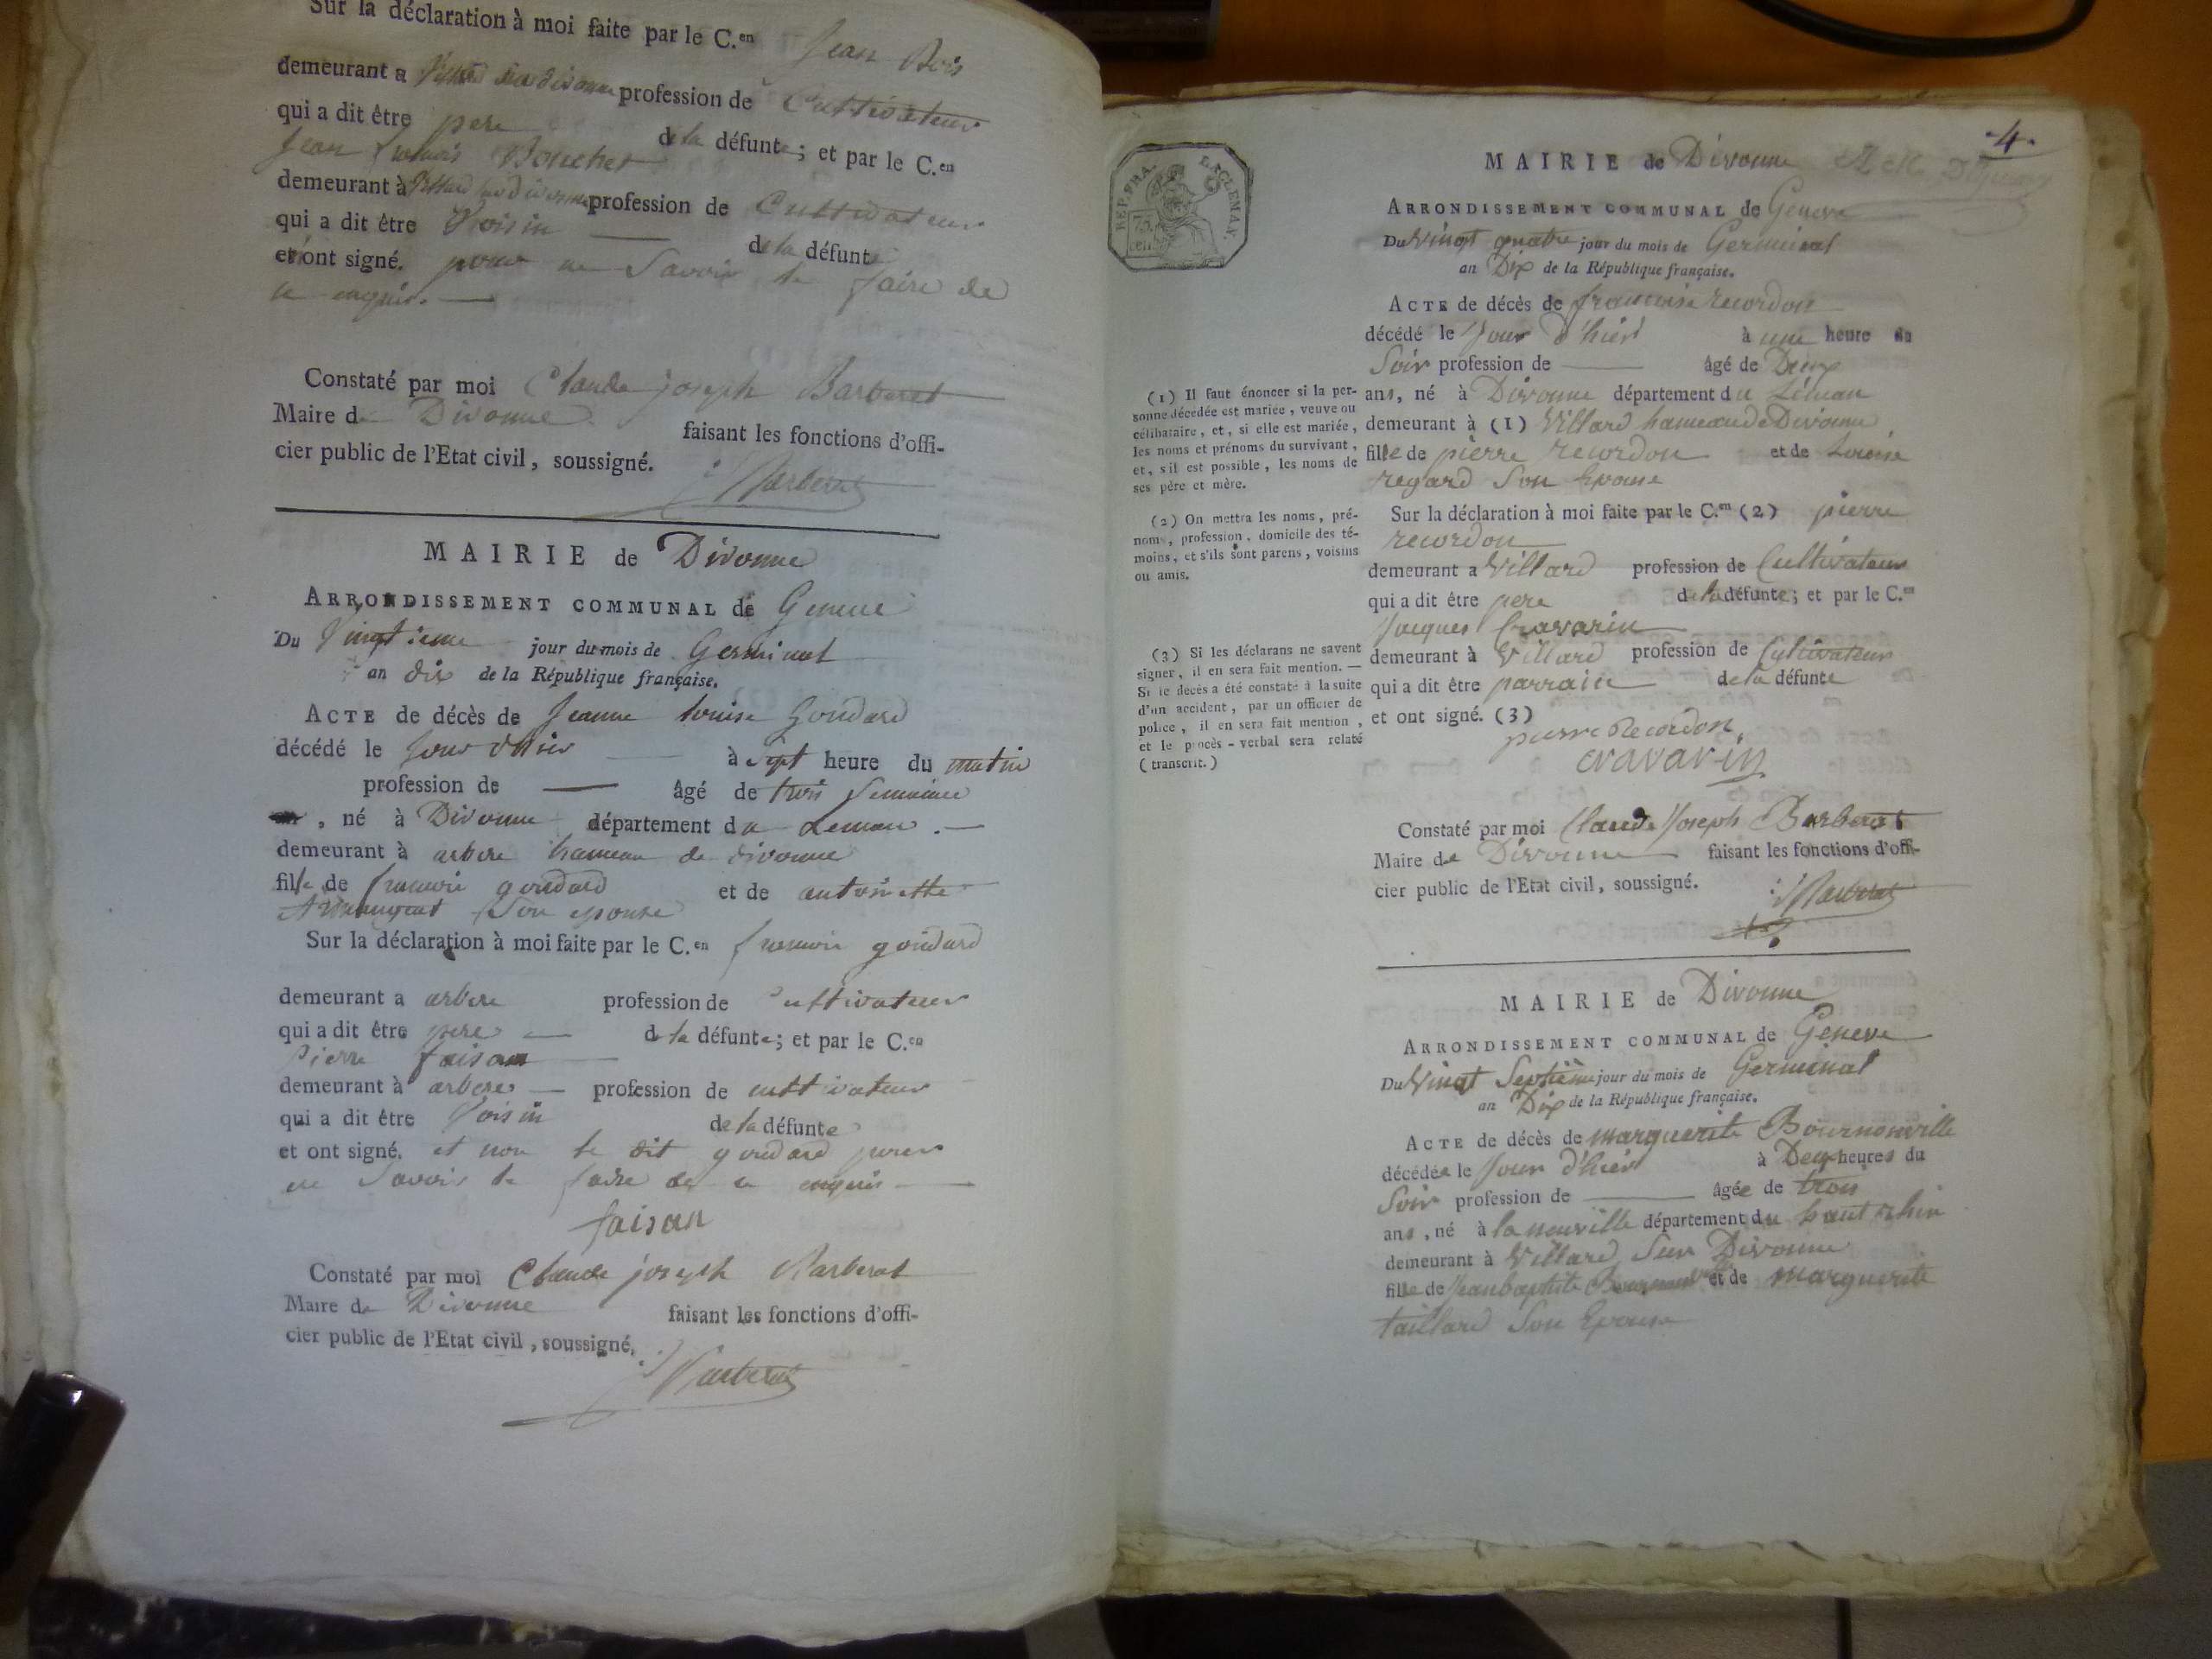 Sur la déclaration à moi faite par le C.en Jean Bois
demeurant a Villard sur divonne profession de Cultivateur
qui a dit être pere de la défunte; et par le C.en
Jean francois Bouchet
demeurant à Villard sur divonne profession de Cultivateur
qui a dit être Voisin de la défunte
et ont signé. pour ne Savoir le faire de
ce enquis.
Constaté par moi Claude joseph Barberat
Maire de Divonne faisant les fonctions d'offi-
cier public de l'Etat civil, soussigné.
Barberat
MAIRIE de Divonne
ARRONDISSEMENT COMMUNAL de Geneve
Du Vingtieme jour du mois de Germinal
an dix de la République française.
ACTE de décès de Jeanne louise Goudard
décédé le jour d'hier à sept heure du matin
profession de âgé de trois Semaines
, né à Divonne département du Leman.
demeurant à arbere hameau de divonne
fille de francois goudard et de antoinette
Son epouse
Sur la déclaration à moi faite par le C.en francois goudard
demeurant a arbere profession de Cultivateur
qui a dit être pere de la défunte; et par le C.en
Pierre faisan
demeurant à arbere profession de cultivateur
qui a dit être Voisin de la défunte
et ont signé. et non le dit goudard pour
ne Savoir le faire de ce enquis
faisan
Constaté par moi Claude joseph Barberat
Maire de Divonne faisant les fonctions d'offi-
cier public de l'Etat civil, soussigné.
Barberat
4.
REP. FRA.
75 cen.
MAIRIE de Divonne
ARRONDISSEMENT COMMUNAL de Geneve
Du Vingt quatre jour du mois de Germinal
an Dix de la République française.
ACTE de décès de francoise recordon
décédé le Jour d'hier à une heure du
Soir profession de âgé de Deux
ans, né à Divonne département du Léman
demeurant à (1) Villard hameau de Divonne
fille de pierre recordon et de Louise
regard Son Epouse
Sur la déclaration à moi faite par le C.en (2) pierre
recordon
demeurant a Villard profession de Cultivateur
qui a dit être pere de la défunte; et par le C.en
Jacques Cravarin
demeurant à Villard profession de Cultivateur
qui a dit être parrain de la défunte
et ont signé. (3)
pierre Recordon
cravarin
Constaté par moi Claude Joseph Barberat
Maire de Divonne faisant les fonctions d'offi-
cier public de l'Etat civil, soussigné.
Barberat
(1) Il faut énoncer si la per-
sonne décédée est mariée, veuve ou
célibataire, et, si elle est mariée,
les noms et prénoms du survivant,
et, s'il est possible, les noms de
ses père et mère.
(2) On mettra les noms, pré-
noms, profession, domicile des té-
moins, et s'ils sont parens, voisins
ou amis.
(3) Si les déclarans ne savent
signer, il en sera fait mention. —
Si le decès a été constaté à la suite
d'un accident, par un officier de
police, il en sera fait mention,
et le procès-verbal sera relaté
(transcrit.)
MAIRIE de Divonne
ARRONDISSEMENT COMMUNAL de Geneve
Du Vingt Septième jour du mois de Germinal
an Dix de la République française.
ACTE de décès de marguerite Bournonville
décédée le Jour d'hier à Deux heures du
Soir profession de âgée de trois
ans, né à la neuville département du haut rhin
demeurant à Villard Sur Divonne
fille de Jeanbaptiste Bournonville et de marguerite
taillard Son Epouse